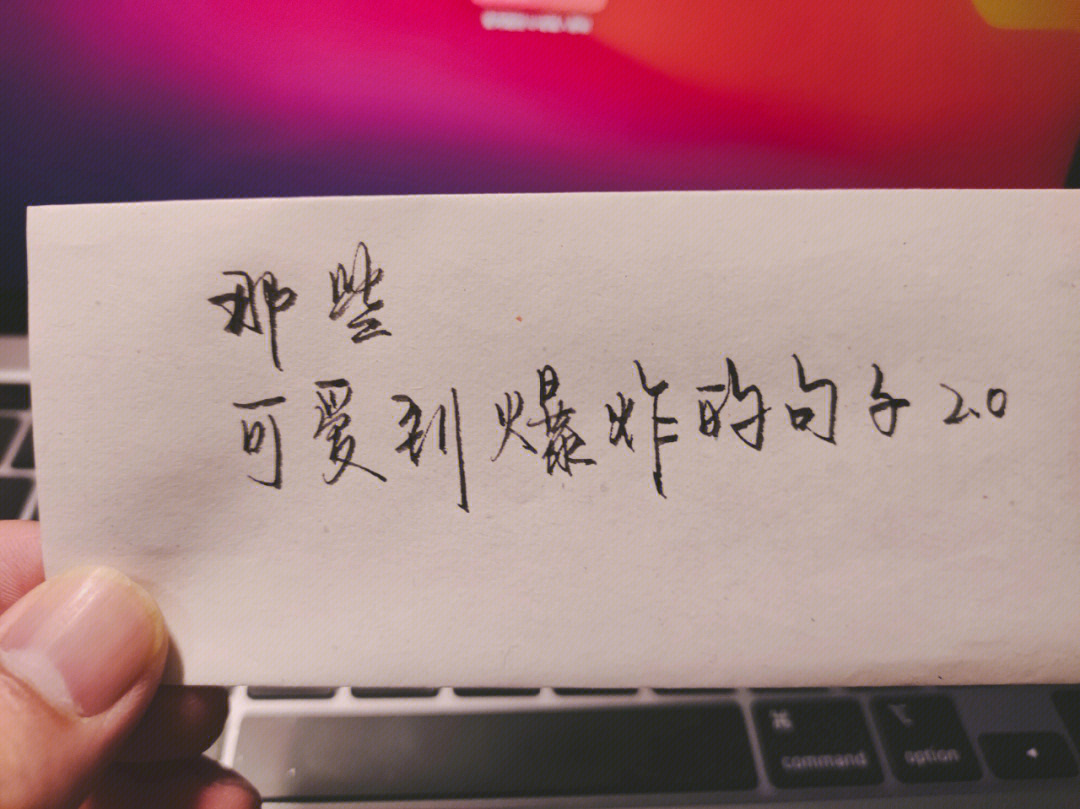 那些
可爱到爆炸的句子 2.0
⌘
command
⌥
option
◀